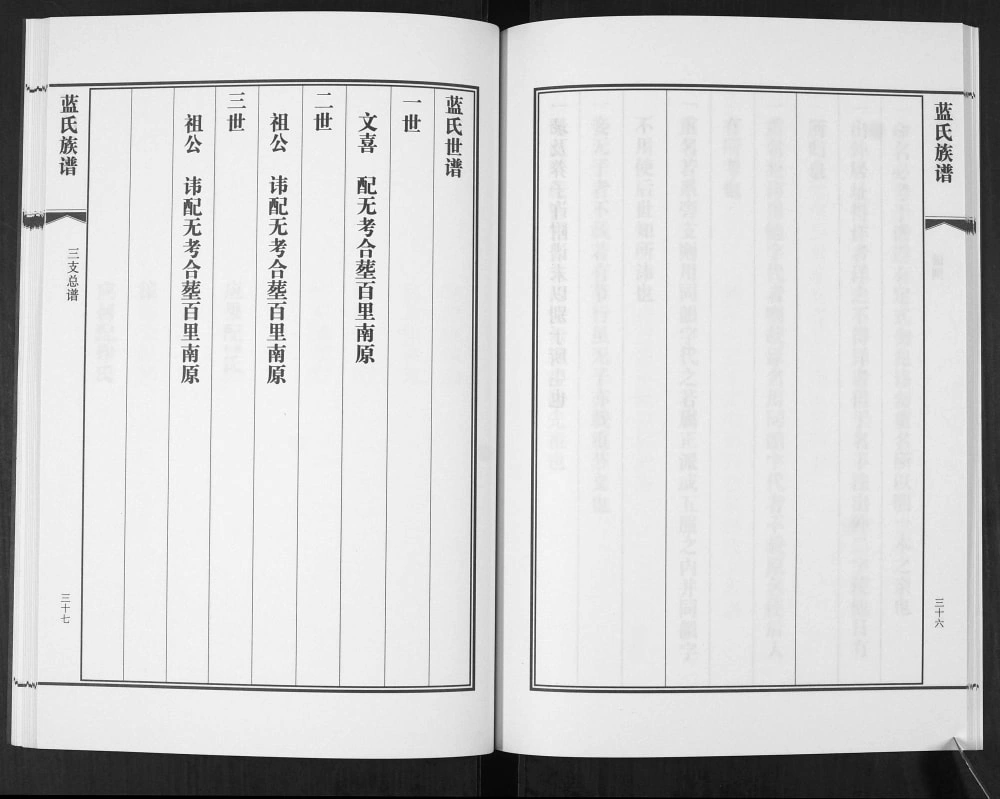 蓝氏族谱
三十六
蓝氏世谱
一世
文喜 配无考合塟百里南原
二世
祖公 讳配无考合塟百里南原
三世
祖公 讳配无考合塟百里南原
蓝氏族谱
三支总谱
三十七